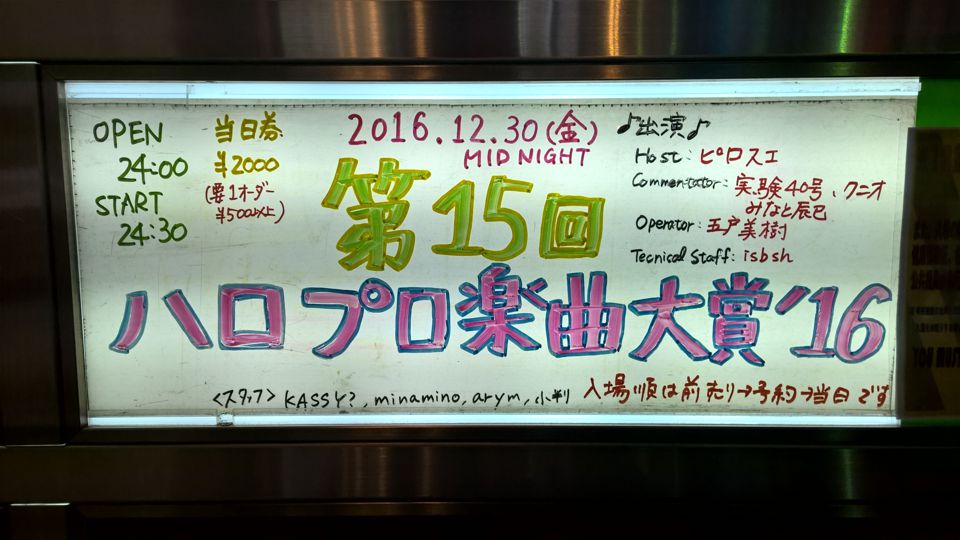 OPEN
24:00
START
24:30
当日券
¥2000
(要1オーダー
¥500以上)
2016.12.30(金)
MIDNIGHT
第15回
ハロプロ楽曲大賞'16
♪出演♪
Host: ピロスエ
Commentator: 実験40号、クニオ
みなと辰巳
Operator: 五戸美樹
Tecnical Staff: isbsh
<スタッフ> KASSY?, minamino, arym, 小判
入場順は前売り→予約→当日です
YOU MUST